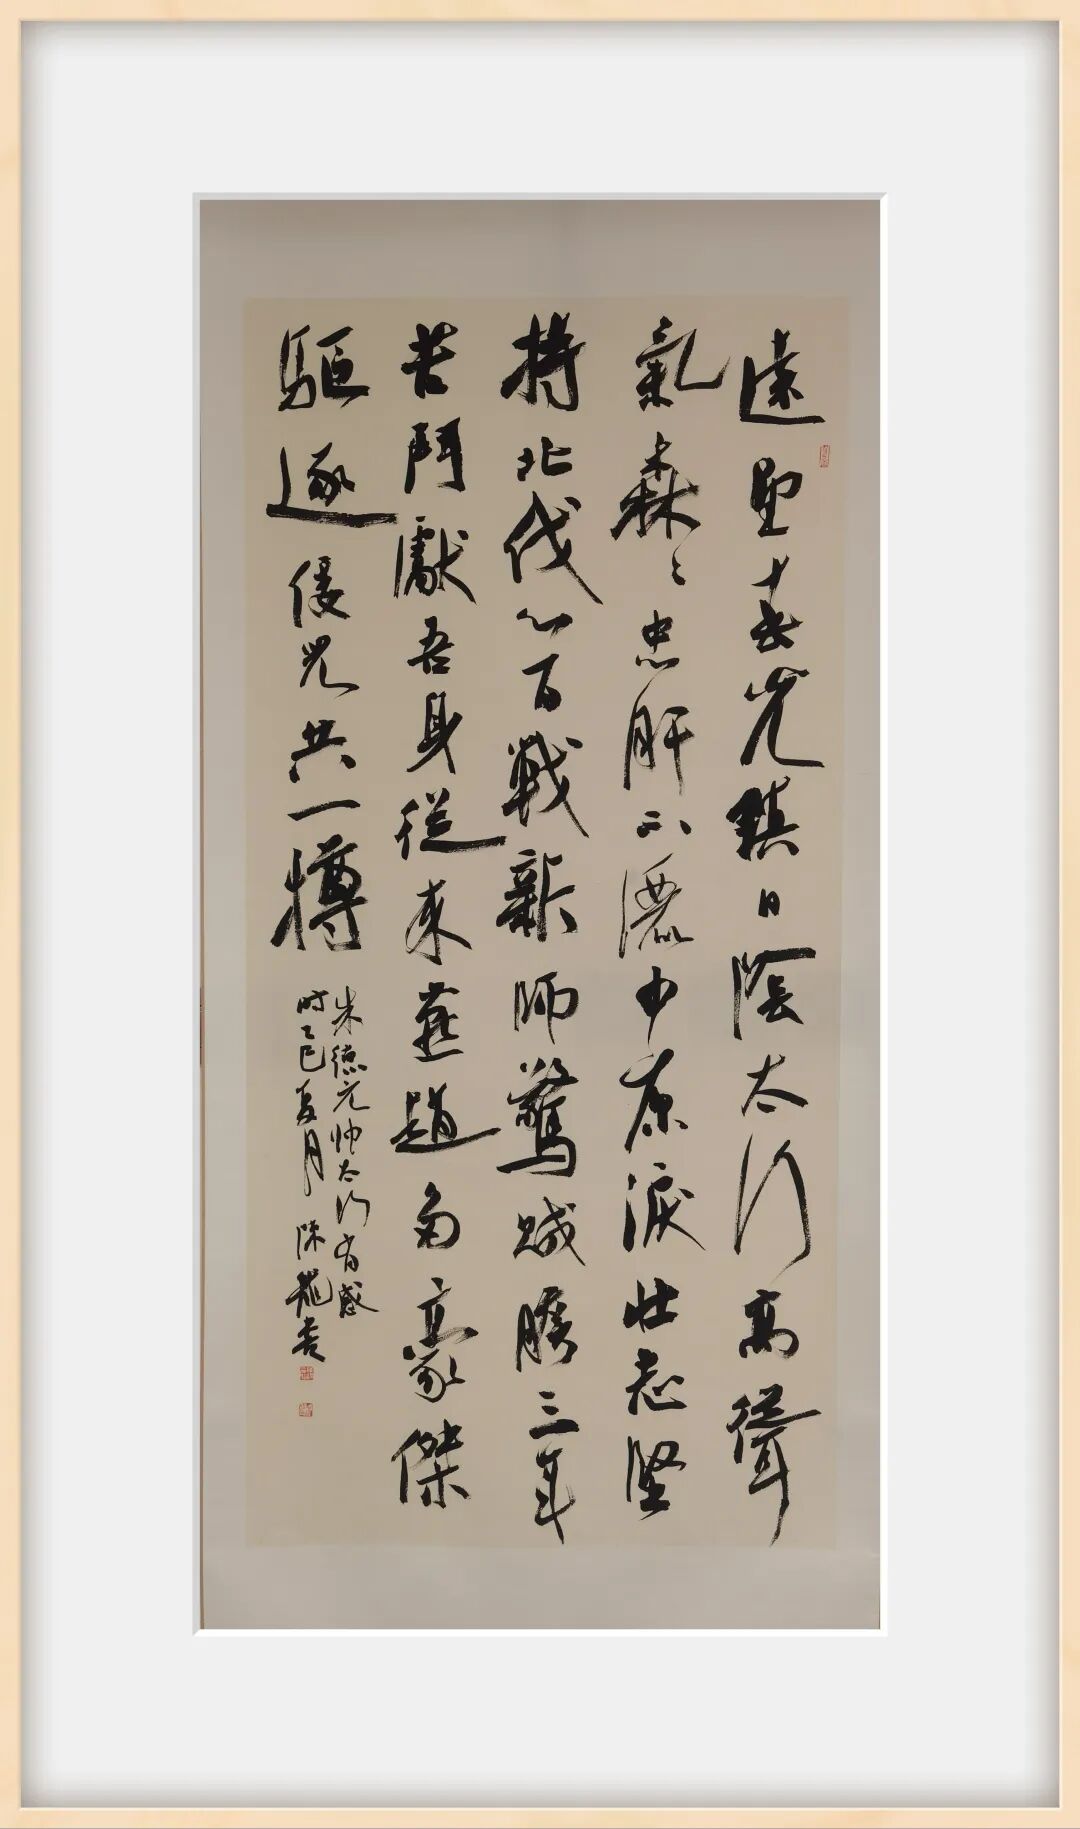 遠望春光鎮日陰太行高聳
氣森々忠肝不灑中原淚壯志堅
持北伐心百戰新師驚賊膽三年
苦鬥獻吾身從來燕趙多豪傑
驅逐倭兒共一樽
朱德元帥太行有感
時乙巳夏月 陳龍